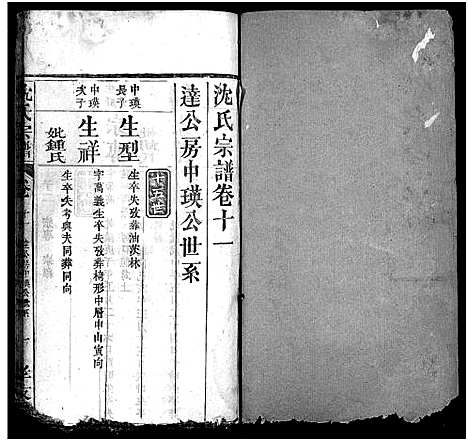 沈氏宗譜卷十一
達公房中瑛公世系
十五世
中瑛長子
生型
生卒失攷葬油茨林
中瑛次子
生祥
字萬義生卒失攷葬椅形中層中山寅向
妣鍾氏
生卒失考與夫同葬同向
沈氏宗譜